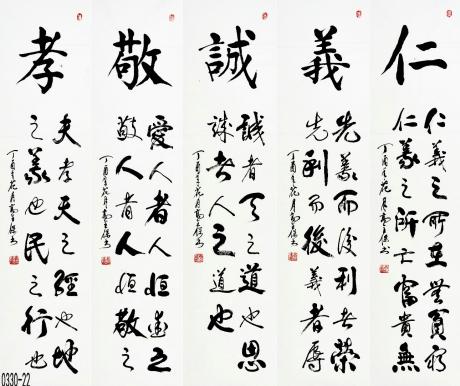 仁
仁義之所在無貧窮
仁義之所亡富貴無
丁酉年花月
義
先義而後利者榮
先利而後義者辱
丁酉年花月
誠
誠者天之道也思
誠者人之道也
丁酉年花月
敬
愛人者人恒愛之
敬人者人恒敬之
丁酉年花月
孝
夫孝天之經也地
之義也民之行也
丁酉年花月
0330-22